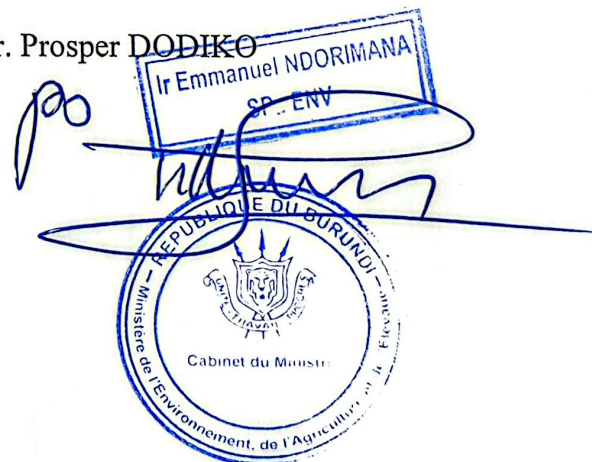 r. Prosper DODIKO
Ir Emmanuel NDORIMANA
SP.. ENV
po
REPUBLIQUE DU BURUNDI
UNITE - TRAVAIL - PROGRES
Cabinet du Ministre
Ministère de l'Environnement, de l'Agriculture et de l'Elevage